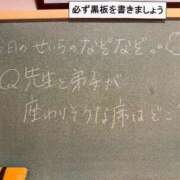 必ず黒板を書きましょう
今日のせいらのなぞなぞ
Q先生と弟子が
座わりそうな席はどこ